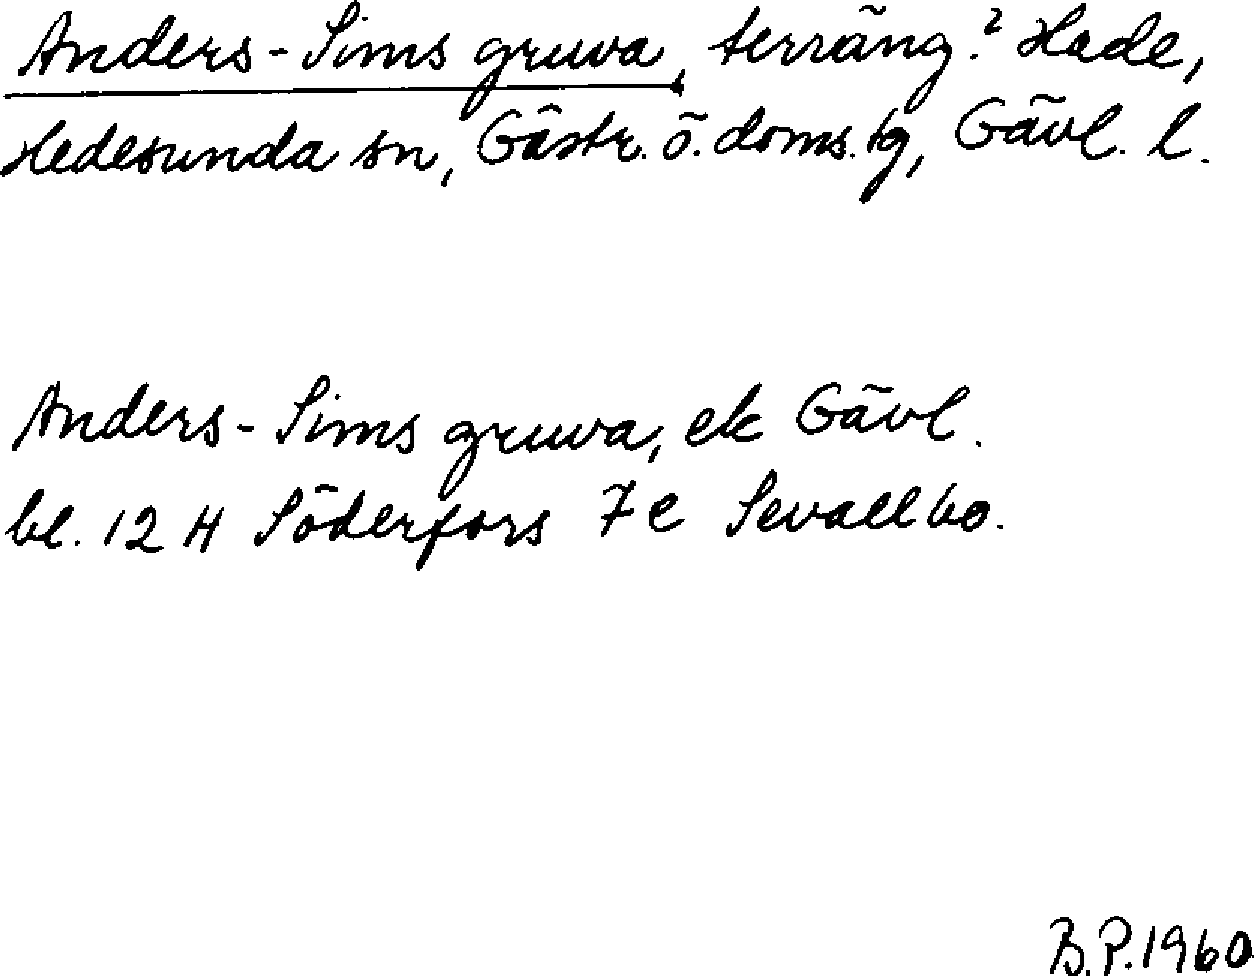 Anders-Sims gruva, terräng? Hade,
Hedesunda sn, Gästr. ö. doms.tg, Gävl. l.
Anders-Sims gruva, ek Gävl.
bl. 12 H Söderfors 7 e Sevallbo.
B.P. 1960